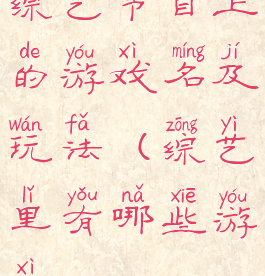 综艺节目上
de yóu xì míng jí
的游戏名及
wán fǎ zōng yì
玩法（综艺
lǐ yǒu nǎ xiē yóu
里有哪些游
xì